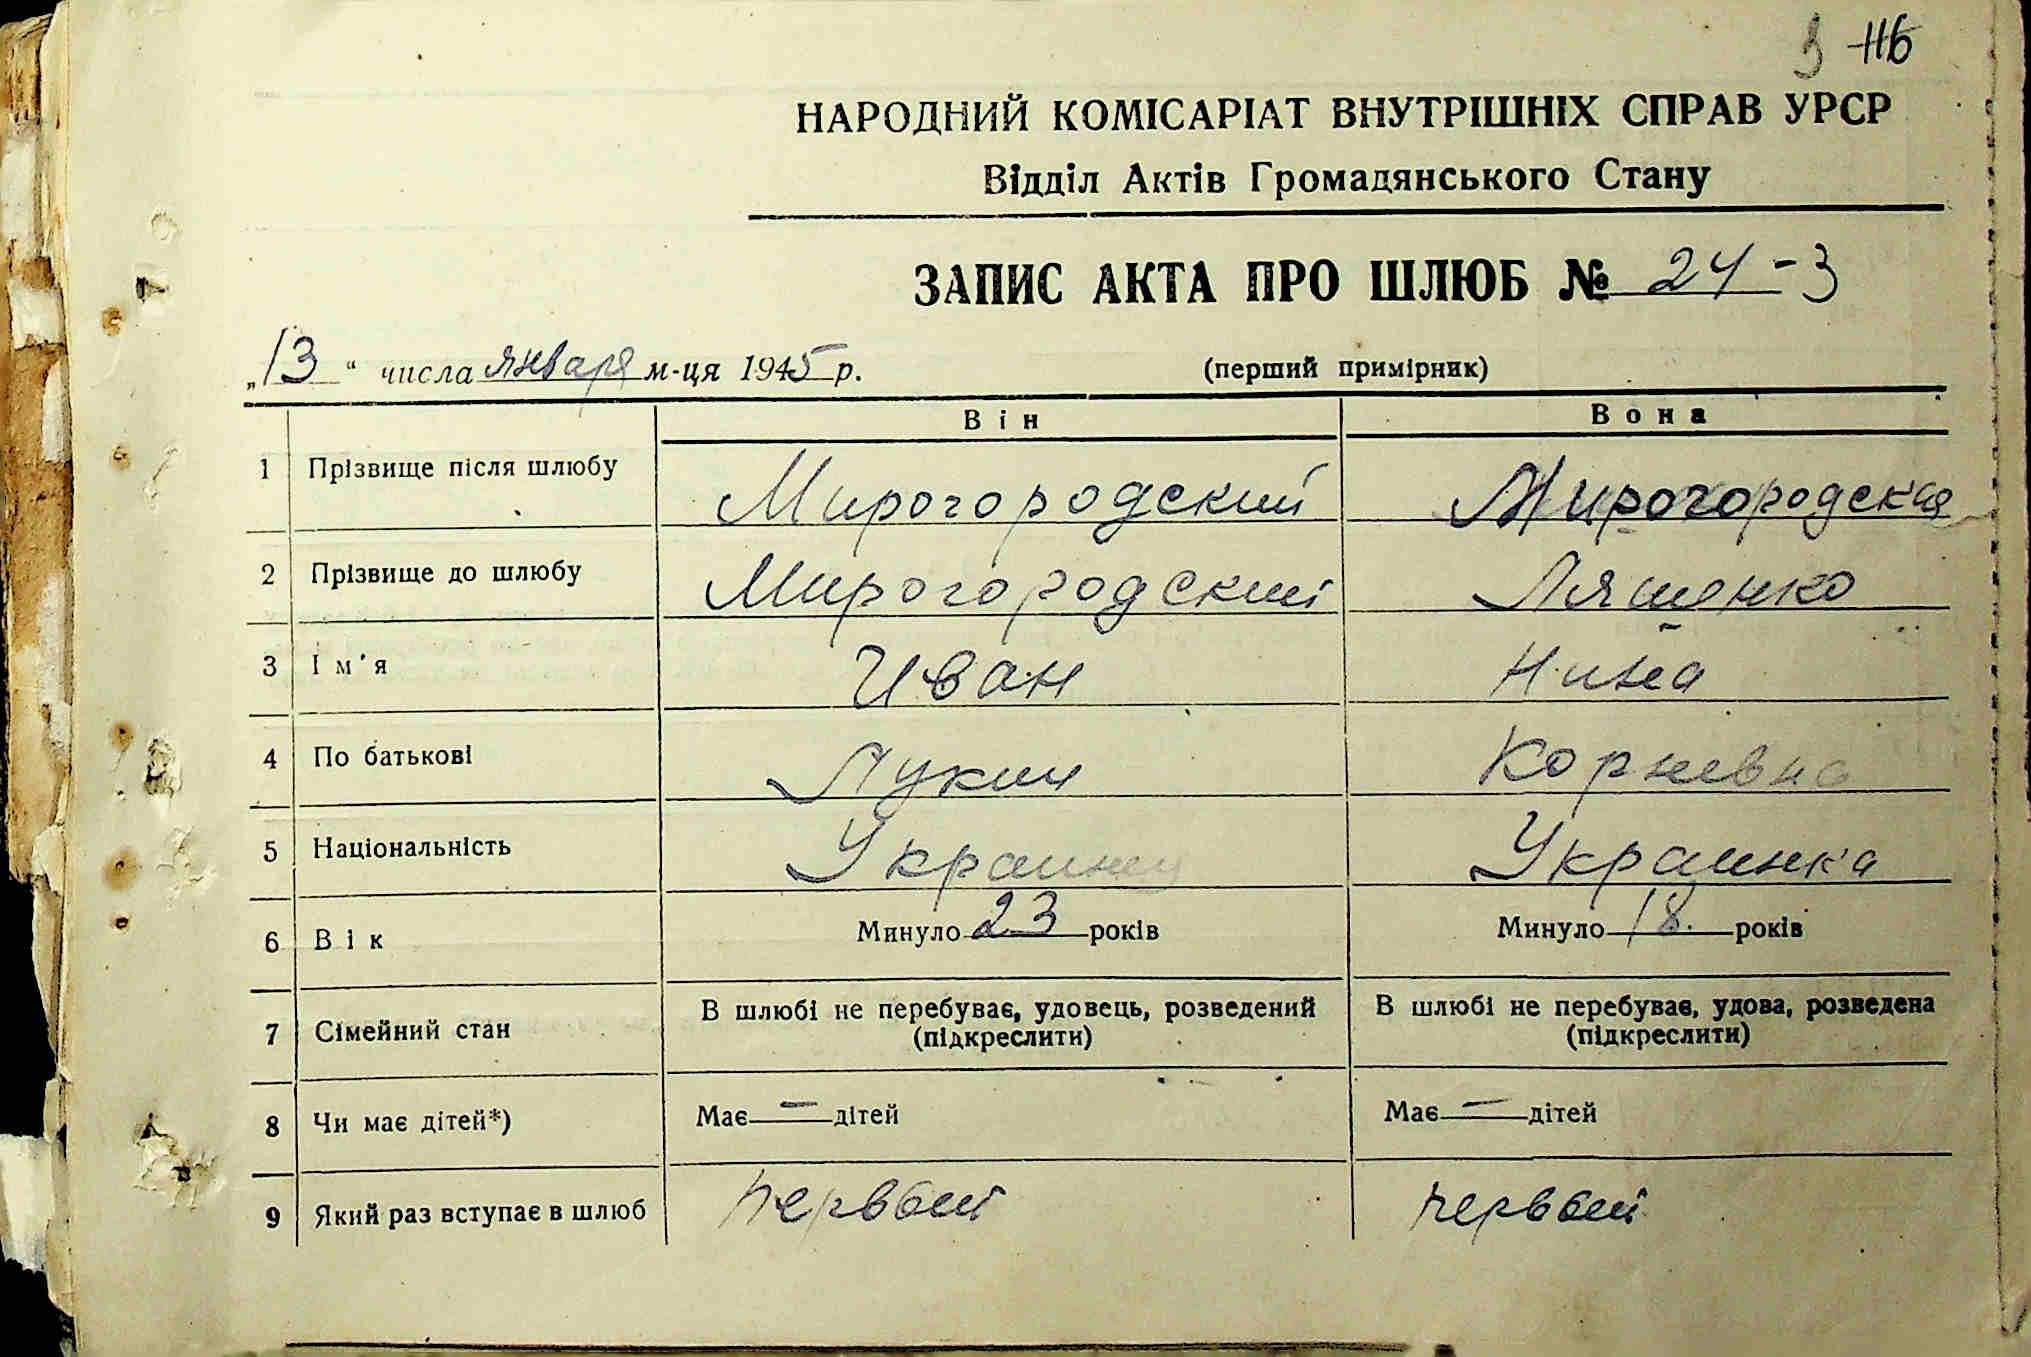 3 116
НАРОДНИЙ КОМІСАРІАТ ВНУТРІШНІХ СПРАВ УРСР
Відділ Актів Громадянського Стану
ЗАПИС АКТА ПРО ШЛЮБ № 24-3
„13“ числа января м-ця 1945 р. (перший примірник)
Він Вона
1 Прізвище після шлюбу Мирогородский Мирогородская
2 Прізвище до шлюбу Мирогородский Ляшенко
3 Ім'я Иван Нина
4 По батькові Лукич Корневна
5 Національність Украинец Украинка
6 Вік Минуло 23 років Минуло 18. років
7 Сімейний стан В шлюбі не перебуває, удовець, розведений (підкреслити) В шлюбі не перебуває, удова, розведена (підкреслити)
8 Чи має дітей*) Має — дітей Має — дітей
9 Який раз вступає в шлюб первый первый